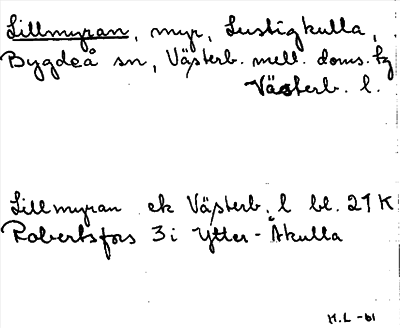 Lillmyran, myr, Lustigkulla,
Bygdeå sn, Västerb. mell. doms. tg
Västerb. l.
Lillmyran ek Västerb. l bl. 21 K
Robertsfors 3 i Ytter-Åkulla
H.L -61